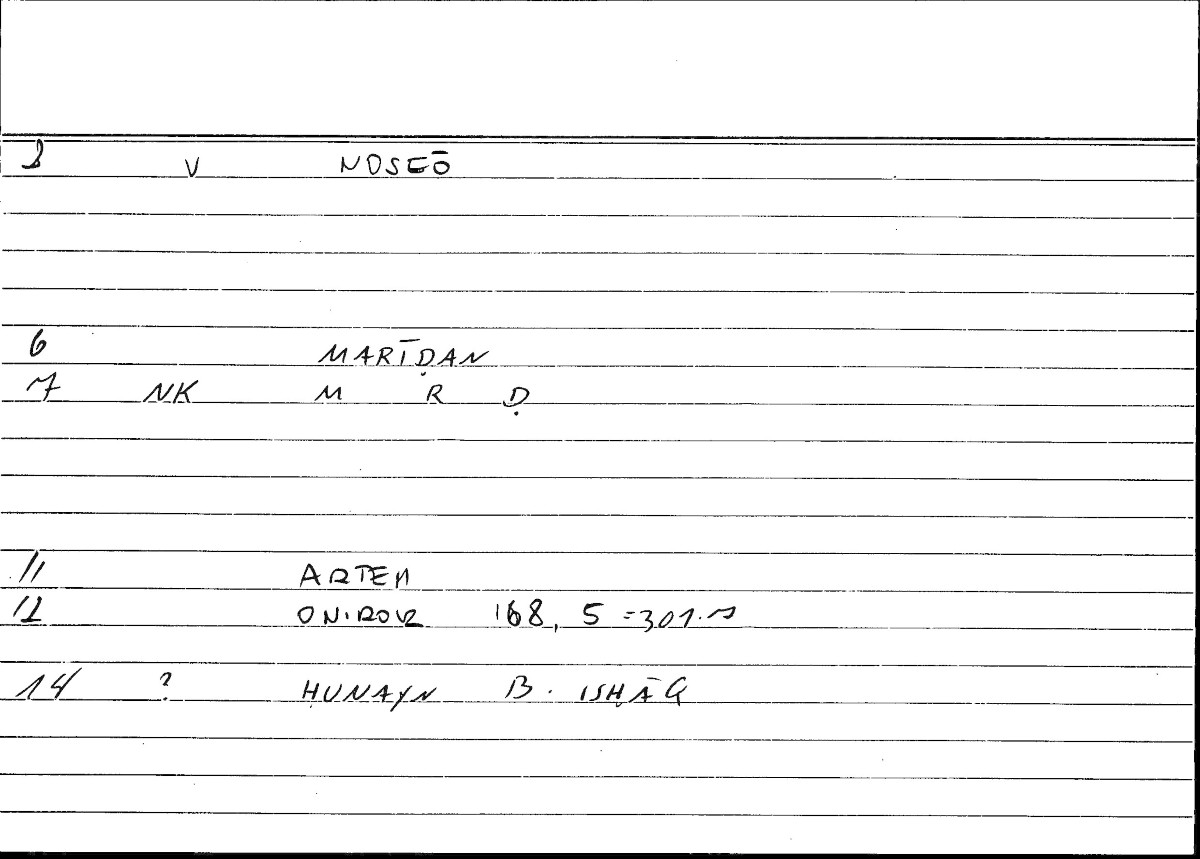 3 V NOSEŌ
6 MARĪḌAN
7 NK M R Ḍ
11 ARTEM
12 ONIROK 168, 5 = 301.7
14 ? ḤUNAYN B. ISḤĀQ